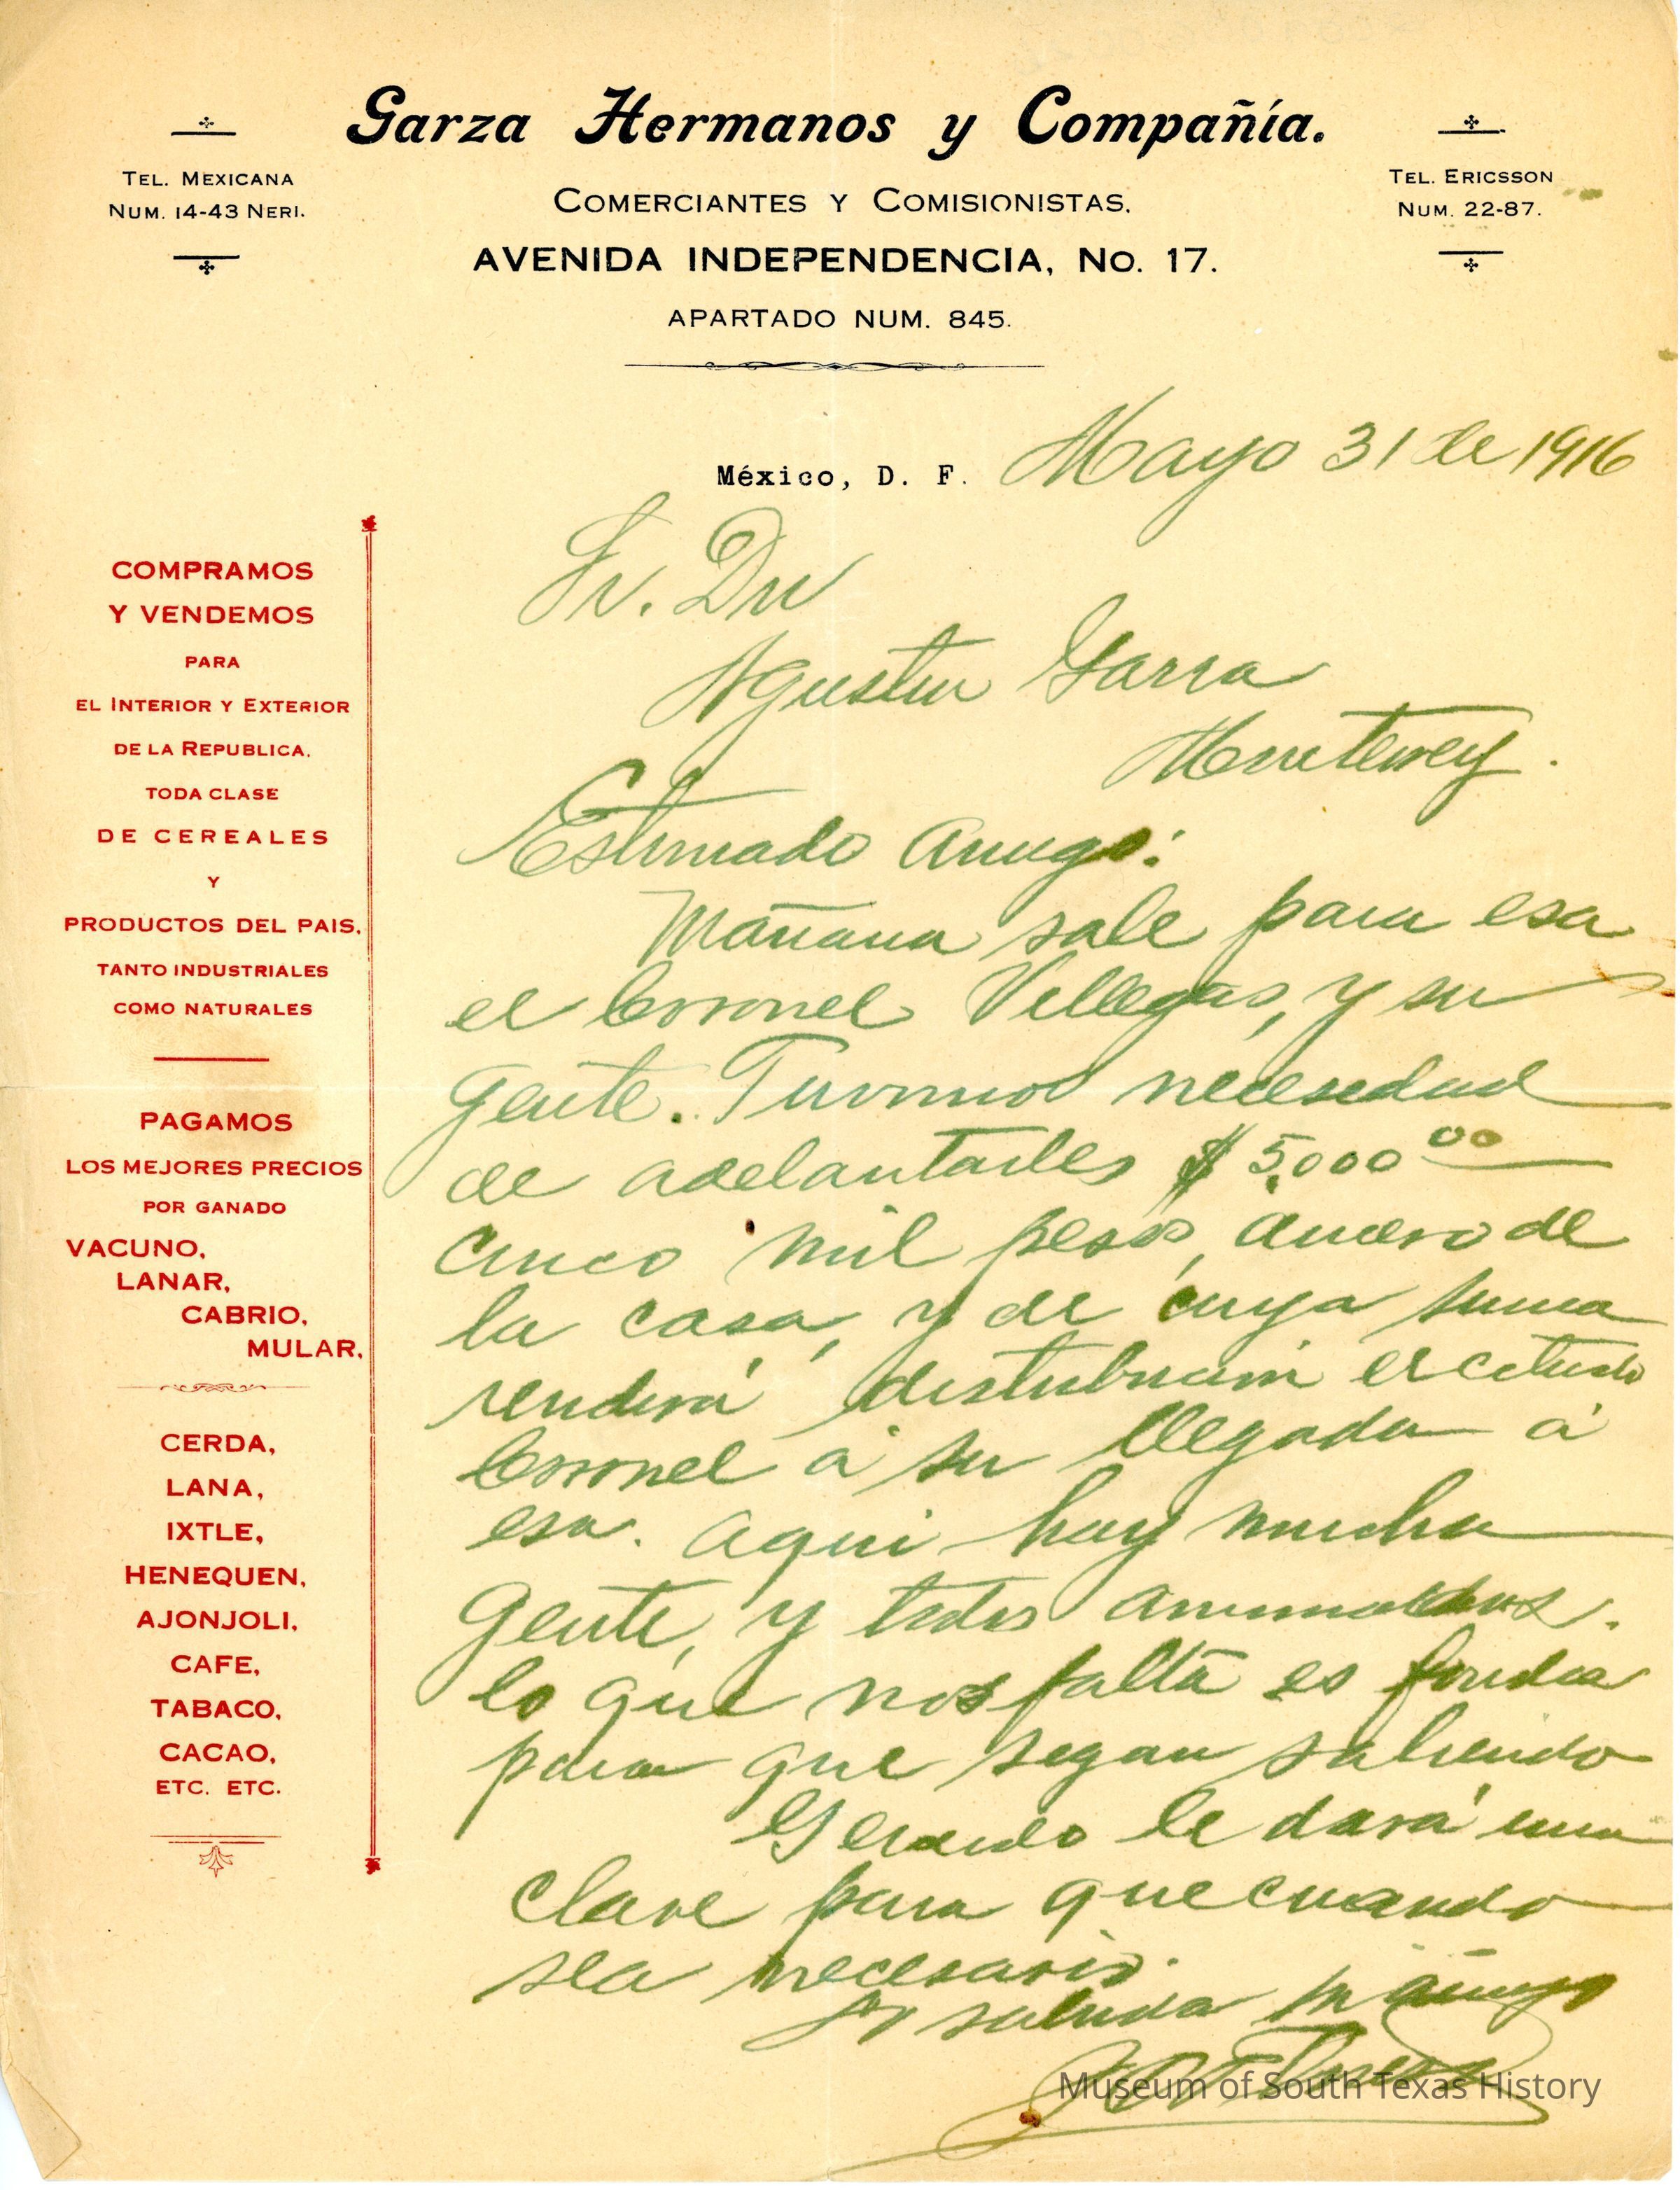 Garza Hermanos y Compañía.
TEL. MEXICANA
NUM. 14-43 NERI.
TEL. ERICSSON
NUM. 22-87.
COMERCIANTES Y COMISIONISTAS.
AVENIDA INDEPENDENCIA, No. 17.
APARTADO NUM. 845.
México, D. F. Mayo 31 de 1916
COMPRAMOS
Y VENDEMOS
PARA
EL INTERIOR Y EXTERIOR
DE LA REPUBLICA.
TODA CLASE
DE CEREALES
Y
PRODUCTOS DEL PAIS,
TANTO INDUSTRIALES
COMO NATURALES
PAGAMOS
LOS MEJORES PRECIOS
POR GANADO
VACUNO,
LANAR,
CABRIO,
MULAR,
CERDA,
LANA,
IXTLE,
HENEQUEN,
AJONJOLI,
CAFE,
TABACO,
CACAO,
ETC. ETC.
Sr. Dn
Agustin Garza
Monterrey.
Estimado amigo:
Mañana sale para esa
el Coronel Villegas, y su
gente. Tuvimos necesidad
de adelantarles $ 5,000 00
cinco mil pesos, dinero de
la casa, y de cuya suma
rendirá distribucion el citado
Coronel á su llegada á
esa. aqui hay mucha
gente, y todos animados.
lo que nos falta es fondos
para que sigan saliendo
Gerardo le dará una
clave para que cuando
sea necesario.
saluda su amigo
Museum of South Texas History